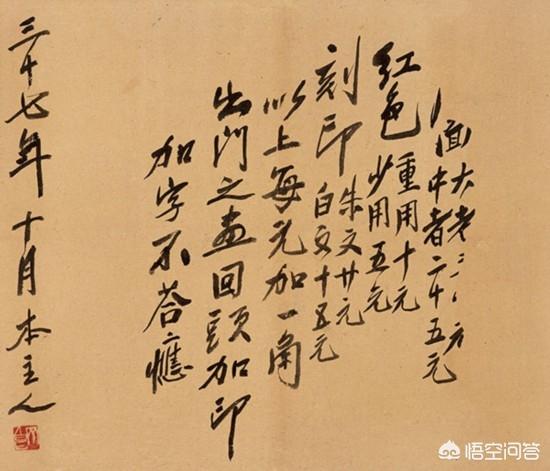 面大者
中者二十五元
紅色
重用十元
少用五元
刻印
朱文廿元
白文十五元
以上每元加一角
出門之畫回頭加印
加字不荅應
三十七年十月本主人
悟空问答